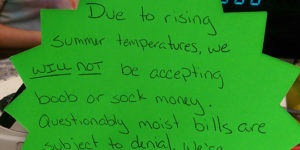 Due to rising
summer temperatures, we
WILL NOT be accepting
boob or sock money.
Questionably moist bills are
subject to denial. We're